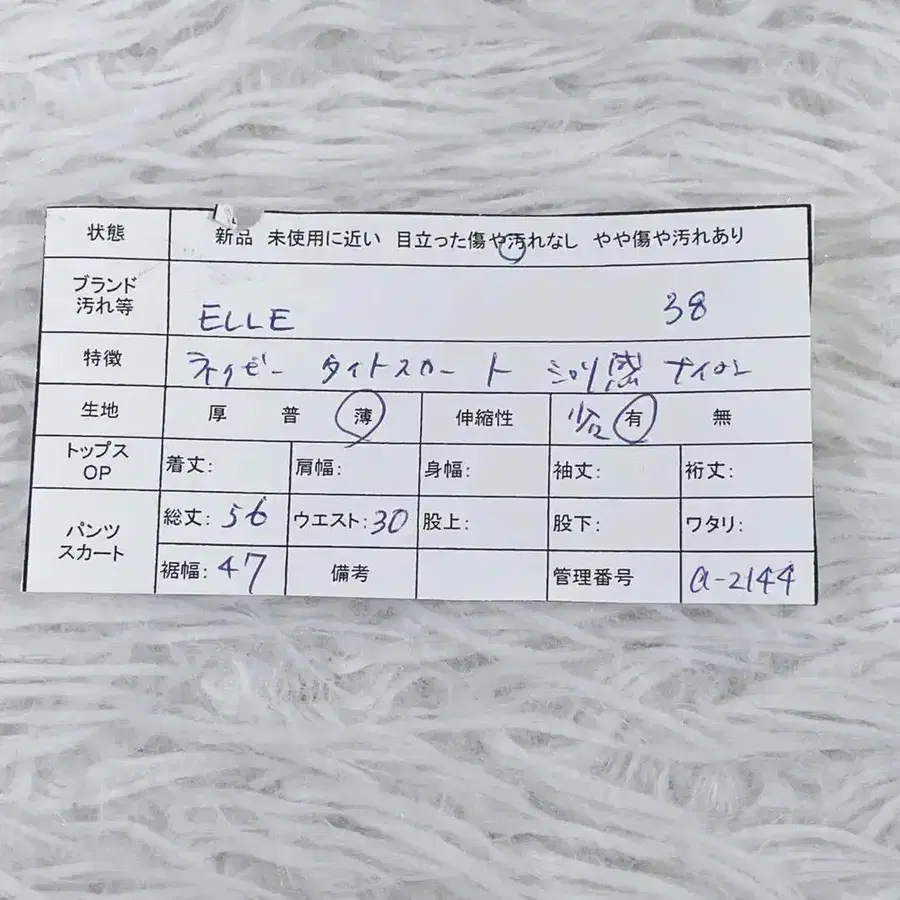 状態 新品 未使用に近い 目立った傷や汚れなし やや傷や汚れあり
ブランド
汚れ等 ELLE 38
特徴 ネイビー タイトスカート シワ感 ナイロン
生地 厚 普 薄 伸縮性 少 有 無
トップス
OP 着丈: 肩幅: 身幅: 袖丈: 裄丈:
パンツ
スカート 総丈: 56 ウエスト: 30 股上: 股下: ワタリ:
裾幅: 47 備考 管理番号 a-2144